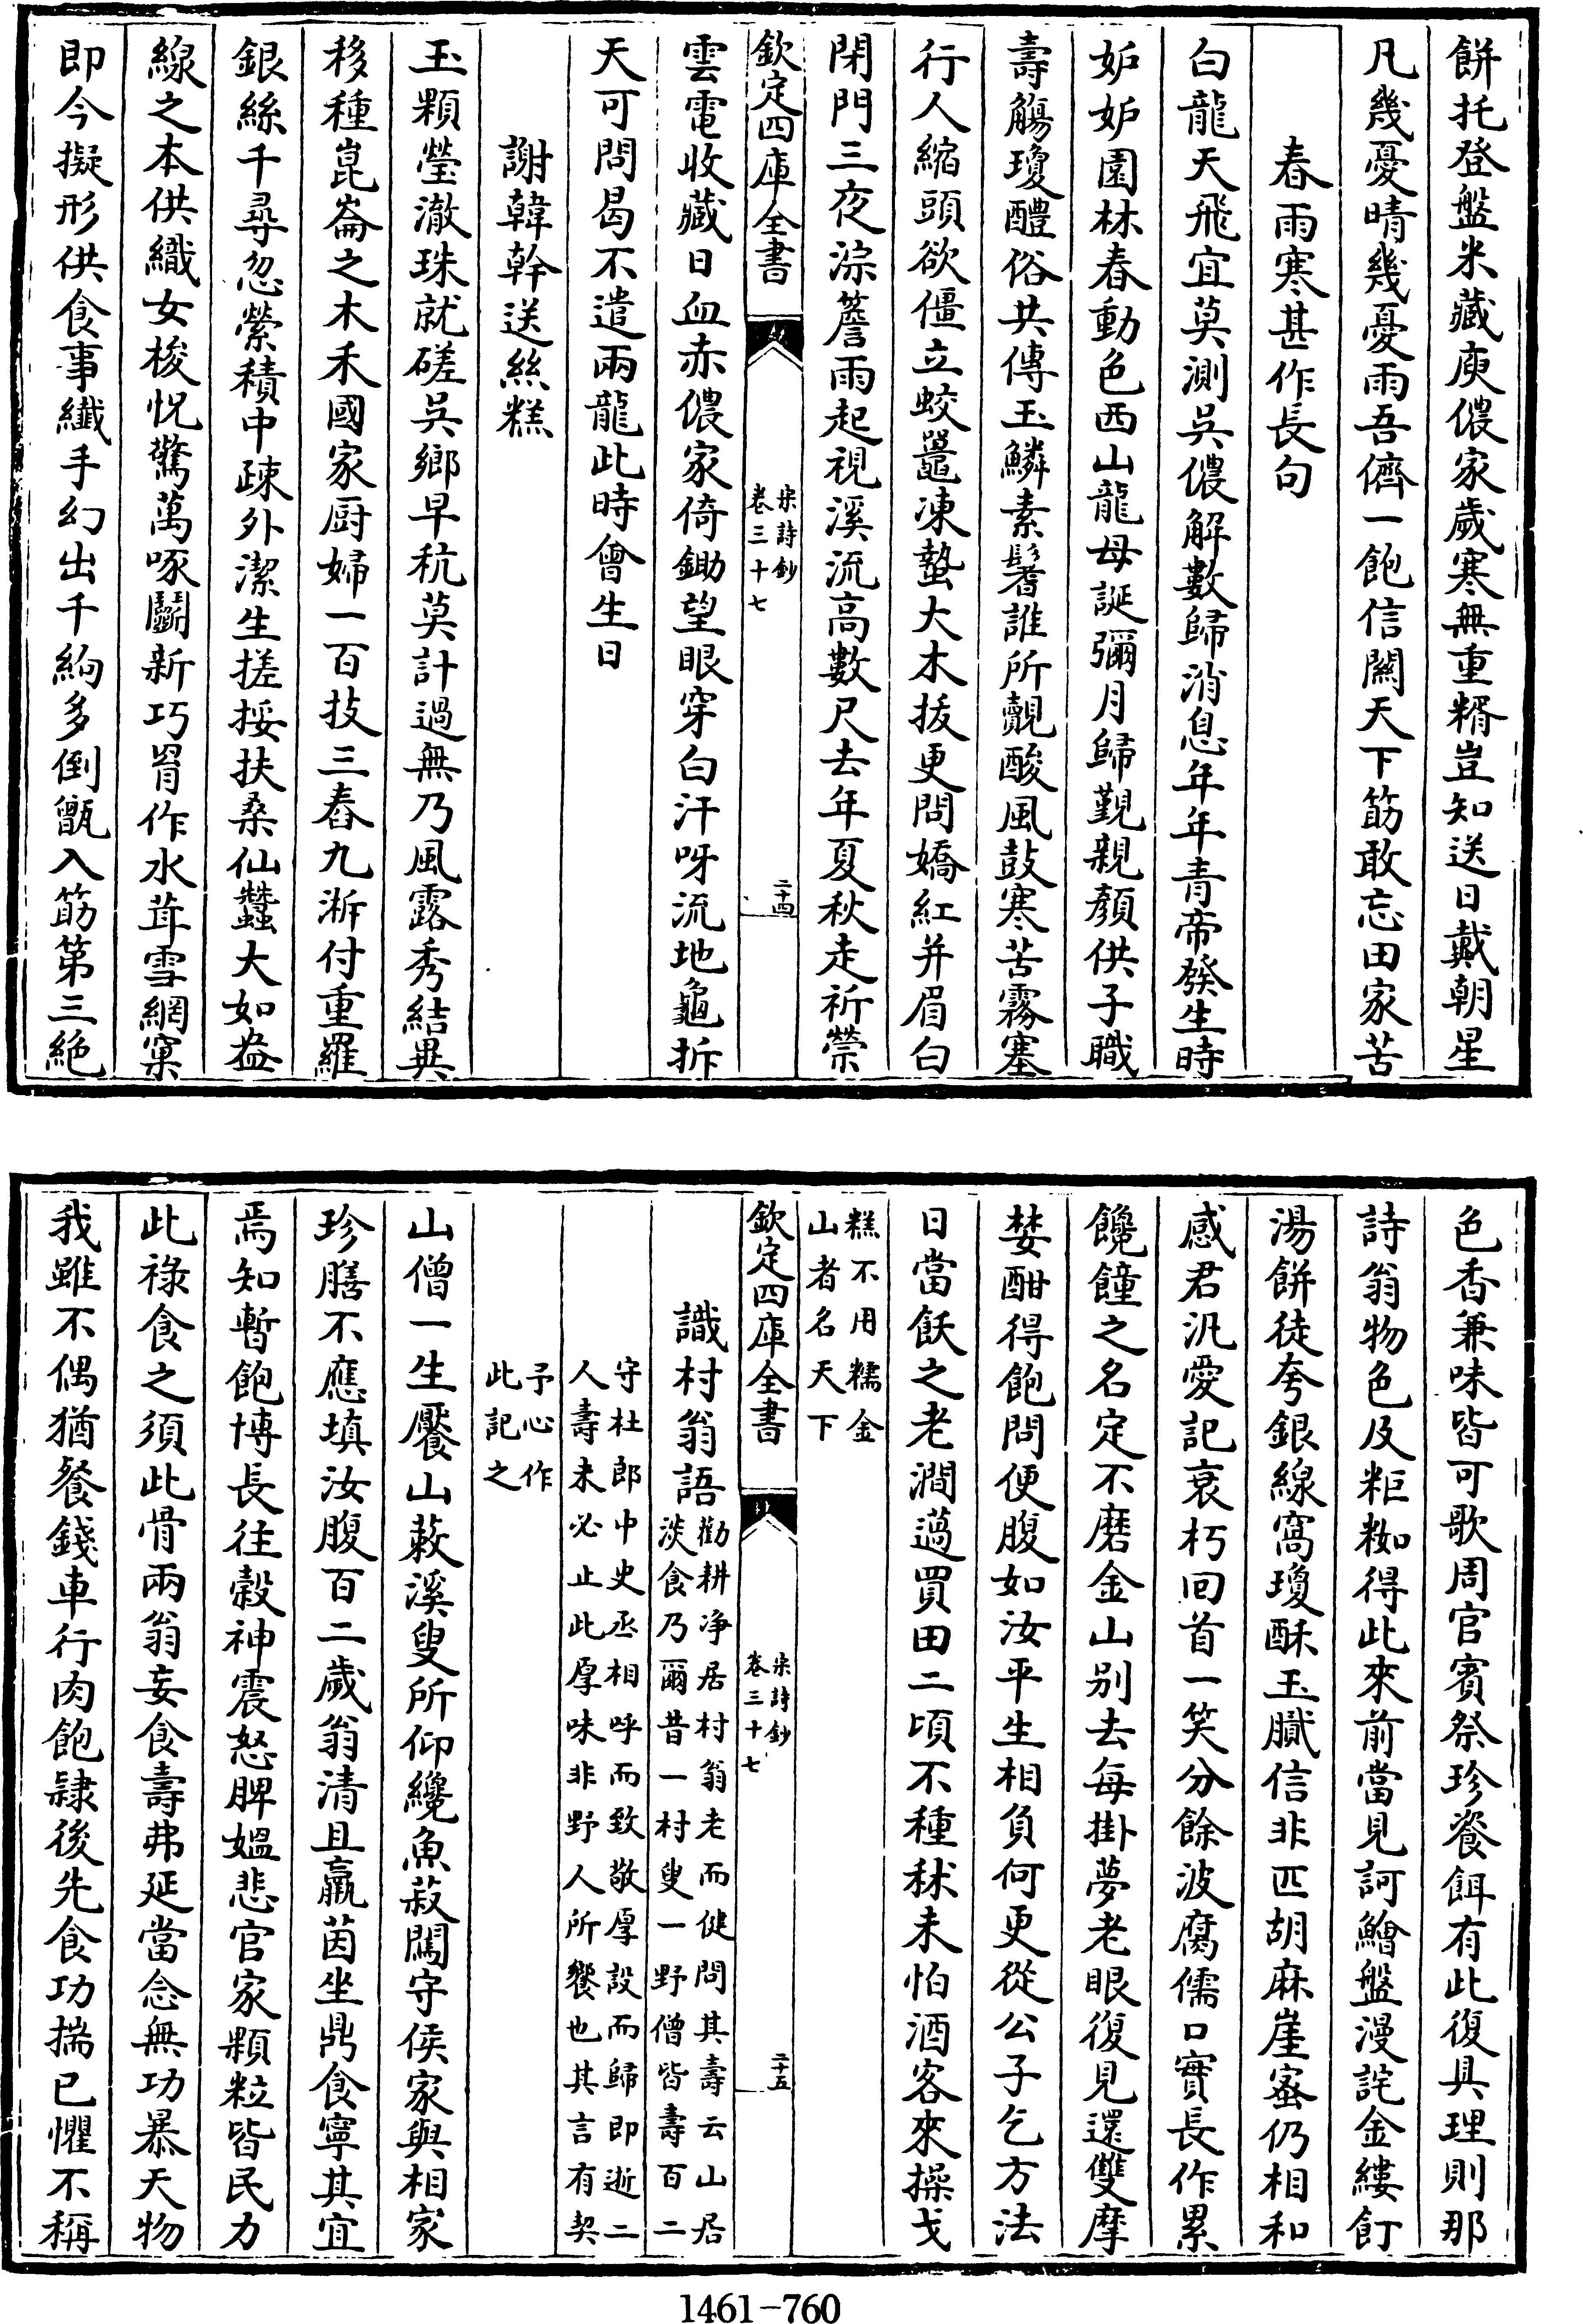 餅托登盤米藏庾儂家歲寒無重糈豈知送日戴朝星
凡幾憂晴幾憂雨吾儕一飽信關天下筯敢忘田家苦
春雨寒甚作長句
白龍天飛宜莫測吳儂解數歸消息年年青帝發生時
妒妒園林春動色西山龍母誕彌月歸覲親顏供子職
壽觴瓊醴俗共傳玉鱗素鬐誰所覿酸風鼓寒苦霧塞
行人縮頭欲僵立蛟鼉凍蟄大木拔更問嬌紅并眉白
閉門三夜淙簷雨起視溪流高數尺去年夏秋走祈禜
欽定四庫全書
宋詩鈔
卷三十七
二十四
雲電收藏日血赤儂家倚鋤望眼穿白汗呀流地龜拆
天可問曷不遣兩龍此時會生日
謝韓幹送絲糕
玉顆瑩澈珠就磋吳鄉早秔莫計過無乃風露秀結異
移種崑崙之木禾國家厨婦一百技三舂九淅付重羅
銀絲千尋忽縈積中疎外潔生搓挼扶桑仙蠶大如盎
線之本供織女梭怳驚萬啄鬭新巧胃作水茸雪網窠
即今擬形供食事纖手幻出千絇多倒甑入筯第三絶
色香兼味皆可歌周官賓祭珍餈餌有此復具理則那
詩翁物色及粔籹得此來前當見訶鱠盤漫詫金縷飣
湯餅徒夸銀線窩瓊酥玉膩信非匹胡麻崖蜜仍相和
感君汎愛記衰朽回首一笑分餘波腐儒口實長作累
饞饞之名定不磨金山别去每掛夢老眼復見還雙摩
婪酣得飽問便腹如汝平生相負何更從公子乞方法
日當飫之老澗薖買田二頃不種秫未怕酒客來操戈
糕不用糯金
山者名天下
欽定四庫全書
宋詩鈔
卷三十七
二十五
識村翁語
勸耕净居村翁老而健問其壽云山居
淡食乃爾昔一村叟一野僧皆壽百二
守杜郎中史丞相呼而致敬厚設而歸即逝二
人壽未必止此厚味非野人所饗也其言有契
予心作
此記之
山僧一生饜山蔌溪叟所仰纔魚菽闊守侯家與相家
珍膳不應填汝腹百二歲翁清且羸茵坐鼎食寧其宜
焉知暫飽博長往穀神震怒脾媼悲官家顆粒皆民力
此祿食之須此骨兩翁妄食壽弗延當念無功暴天物
我雖不偶猶餐錢車行肉飽隷後先食功揣已懼不稱
1461-760